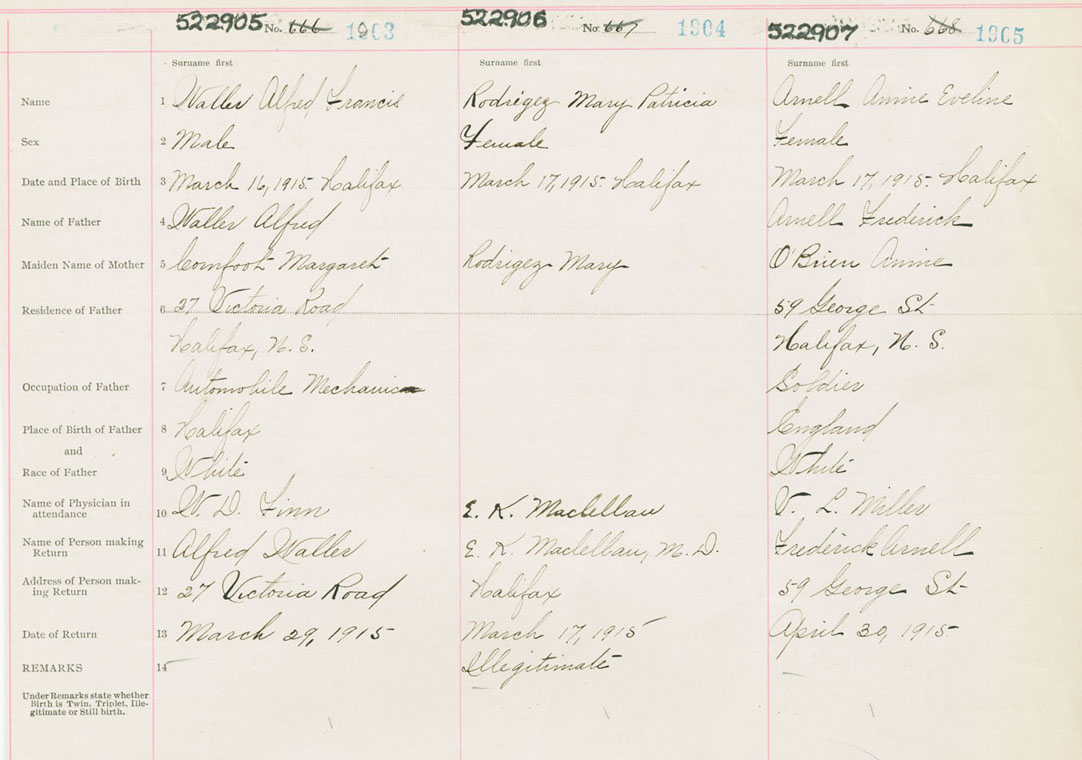 522905 No. 666 1903 522906 No. 667 1904 522907 No. 668 1905
Surname first Surname first Surname first
Name 1 Waller Alfred Francis Rodrigez Mary Patricia Arnell Annie Eveline
Sex 2 Male Female Female
Date and Place of Birth 3 March 16, 1915 Halifax March 17, 1915. Halifax March 17, 1915. Halifax
Name of Father 4 Waller Alfred Arnell Frederick
Maiden Name of Mother 5 Cornfoot Margaret Rodrigez Mary O'Brien Annie
Residence of Father 6 27 Victoria Road 59 George St
Halifax, N.S. Halifax, N.S.
Occupation of Father 7 Automobile Mechanic Soldier
Place of Birth of Father 8 Halifax England
and
Race of Father 9 White White
Name of Physician in
attendance 10 W. D. Finn E. K. Maclellan V. L. Miller
Name of Person making
Return 11 Alfred Waller E. K. Maclellan, M.D. Frederick Arnell
Address of Person mak-
ing Return 12 27 Victoria Road Halifax 59 George St
Date of Return 13 March 29, 1915 March 17, 1915 April 30, 1915
REMARKS 14 Illegitimate
Under Remarks state whether
Birth is Twin, Triplet, Ille-
gitimate or Still birth.